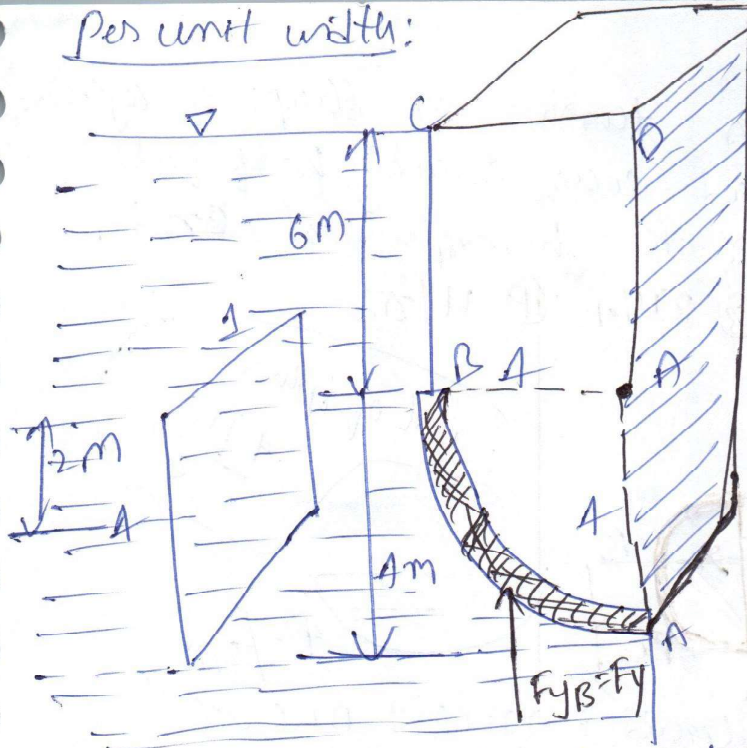 Per unit width:
C
D
6M
1
B 4 A
2M
4
4
4m
A
FyB=Fy